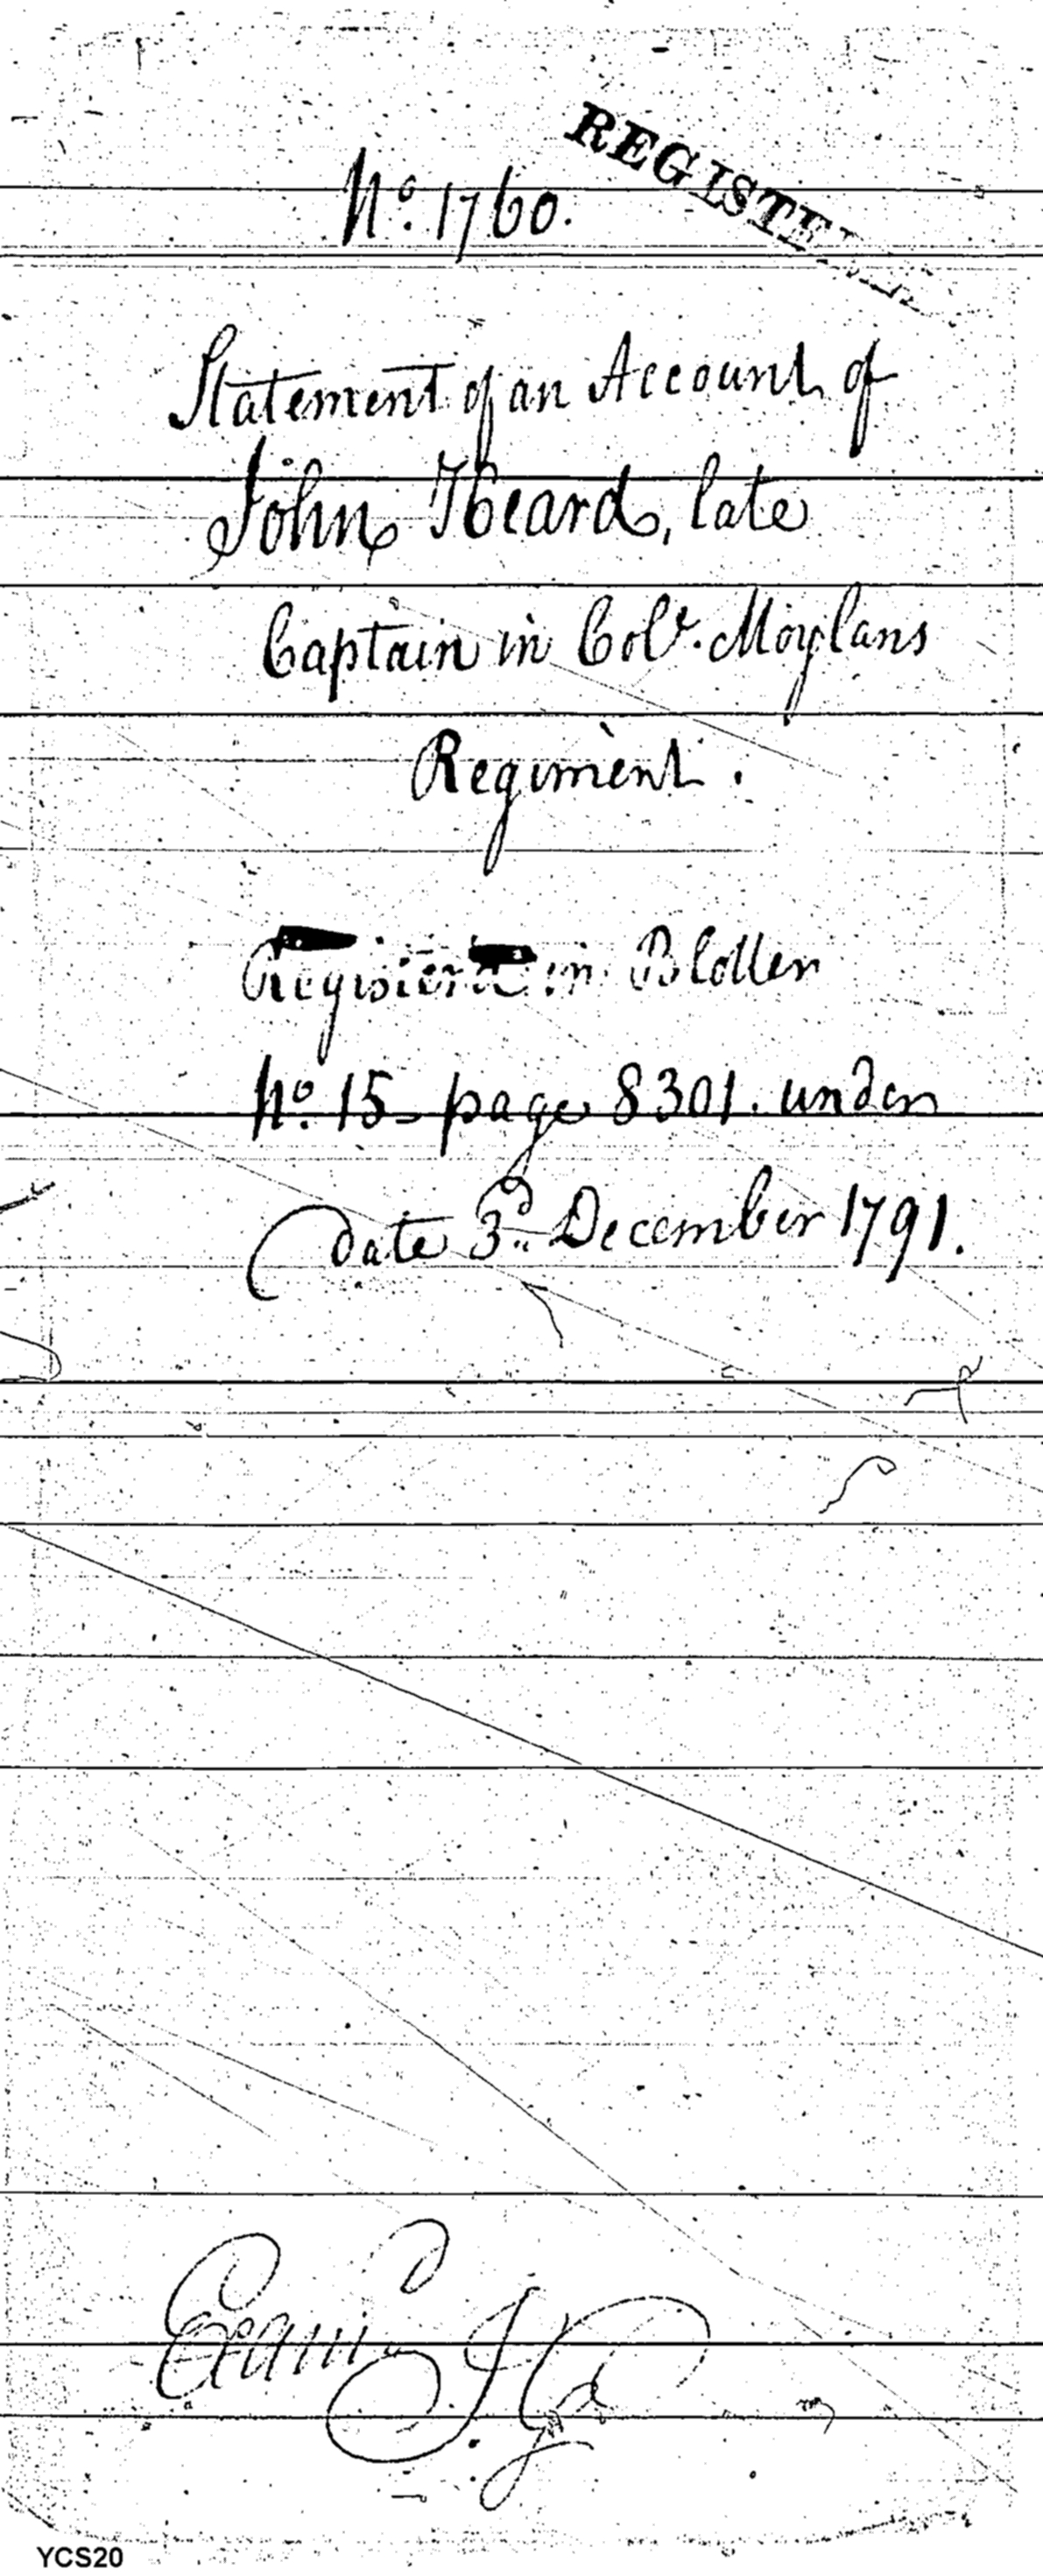 REGISTE
No. 1760.
Statement of an Account of
John Heard, late
Captain in Colo. Moylans
Regiment.
Registered in Blotter
No. 15 page 8301. under
date 3d. December 1791.
Examd
YCS20